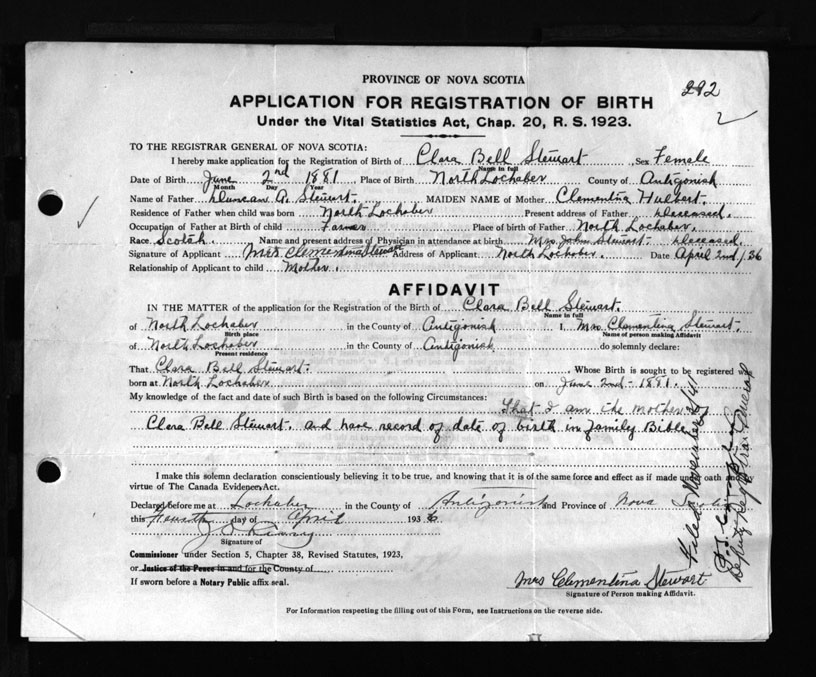 PROVINCE OF NOVA SCOTIA
292
APPLICATION FOR REGISTRATION OF BIRTH
Under the Vital Statistics Act, Chap. 20, R. S. 1923.
TO THE REGISTRAR GENERAL OF NOVA SCOTIA:
I hereby make application for the Registration of Birth of Clara Bell Stewart Sex Female
Name in full
Date of Birth June 2nd 1881 Place of Birth North Lochaber County of Antigonish
Month Day Year
Name of Father Duncan A. Stewart. MAIDEN NAME of Mother Clementina Hulbert.
Residence of Father when child was born North Lochaber Present address of Father deceased.
Occupation of Father at Birth of child Farmer Place of birth of Father North Lochaber.
Race Scotch. Name and present address of Physician in attendance at birth Mrs. John Stewart - deceased.
Signature of Applicant Mrs Clementina Stewart Address of Applicant North Lochaber. Date April 2nd/36
Relationship of Applicant to child Mother.
AFFIDAVIT
IN THE MATTER of the application for the Registration of the Birth of Clara Bell Stewart.
Name in full
of North Lochaber in the County of Antigonish I, Mrs Clementina Stewart.
Birth place Name of person making Affidavit
of North Lochaber in the County of Antigonish do solemnly declare:
Present residence
That Clara Bell Stewart. Whose Birth is sought to be registered was
born at North Lochaber on June 2nd - 1881.
My knowledge of the fact and date of such Birth is based on the following Circumstances: That I am the mother of
Clara Bell Stewart. and have record of date of birth in family Bible
I make this solemn declaration conscientiously believing it to be true, and knowing that it is of the same force and effect as if made under oath and by
virtue of The Canada Evidence Act.
Declared before me at Lochaber in the County of Antigonish and Province of Nova Scotia
this day of April 1936
Signature of
Commissioner under Section 5, Chapter 38, Revised Statutes, 1923,
or Justice of the Peace in and for the County of
If sworn before a Notary Public affix seal.
Mrs Clementina Stewart
Signature of Person making Affidavit.
For Information respecting the filling out of this Form, see Instructions on the reverse side.
Filed November
Deputy Registrar General